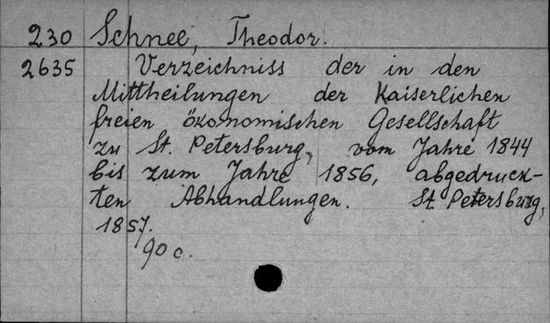 230 Schnee, Theodor.
2635 Verzeichniss der in den
Mittheilungen der Kaiserlichen
freien ökonomischen Gesellschaft
zu St. Petersburg, vom Jahre 1844
bis zum Jahre 1856, abgedruck-
ten Abhandlungen. St. Petersburg,
1857.
90 c.